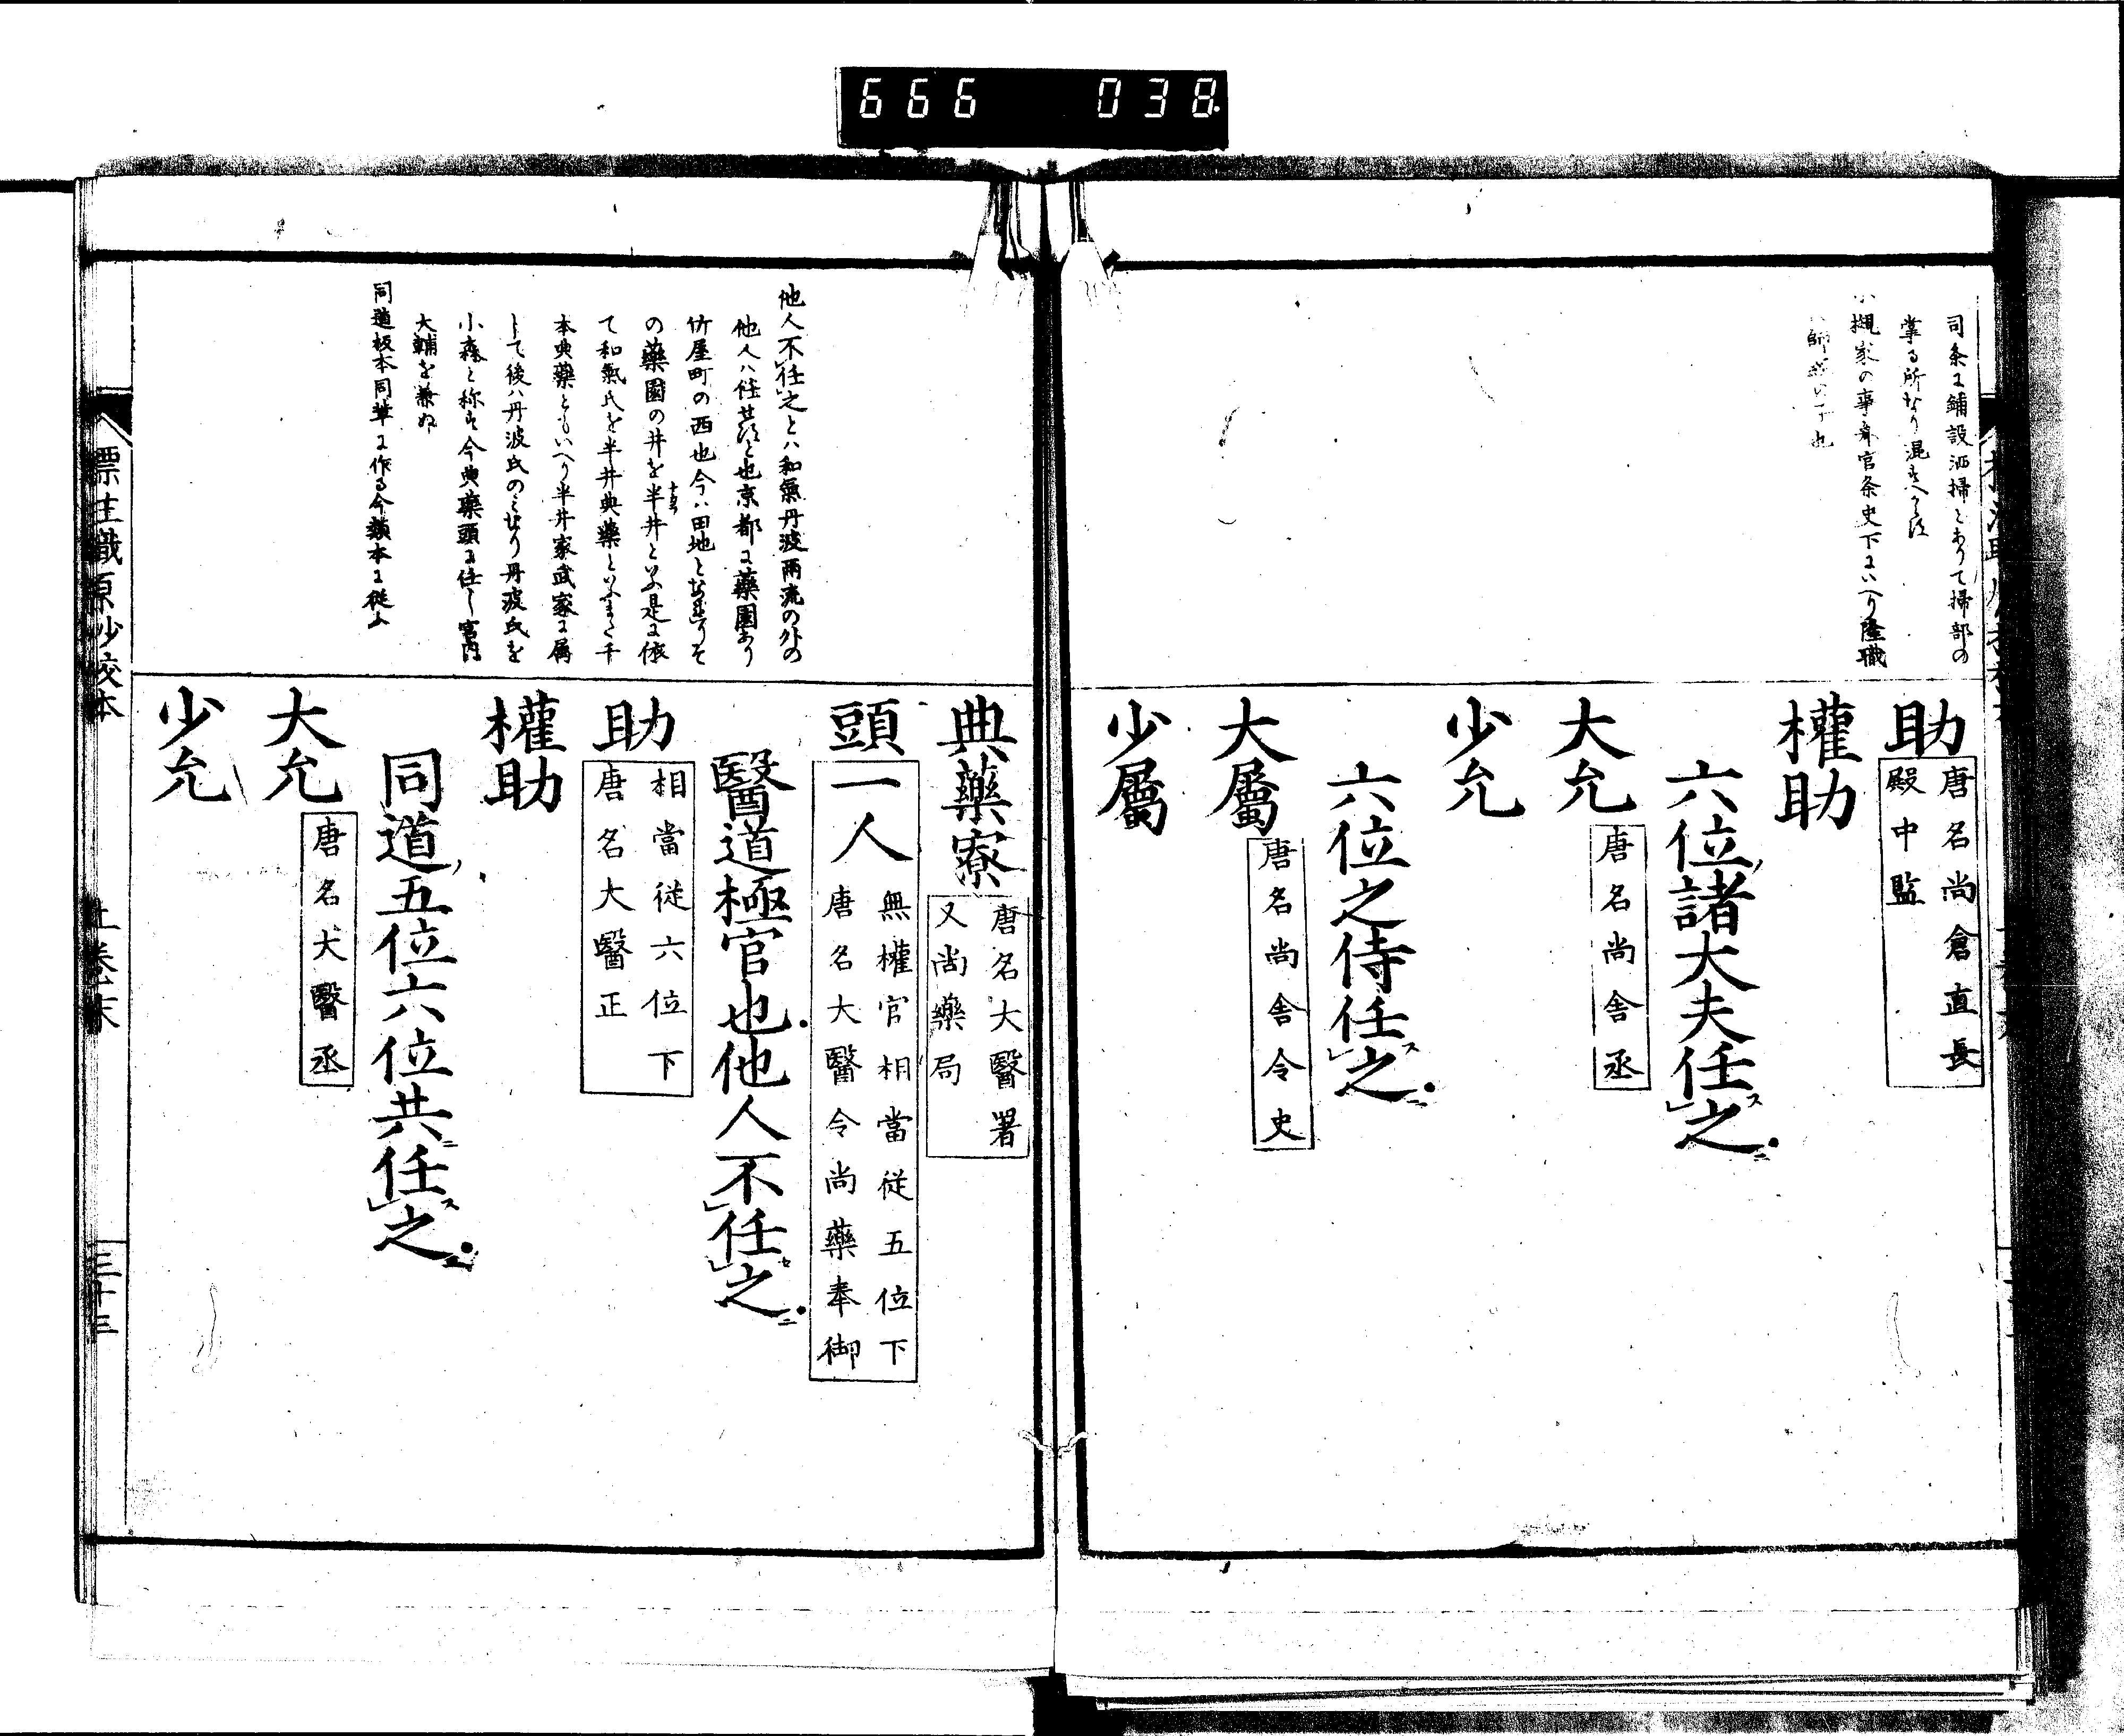 666 038
司条に鋪設洒掃とありて掃部の
掌る所なり混すへからす
家の事弁官条史下にいへり隆職
助
唐名尚倉直長
殿中監
權助
六位諸大夫任レ之ス
大允
唐名尚舎丞
少允
六位之侍任レ之ス
大屬
唐名尚舎令史
少屬
他人不任之とハ和氣丹波兩流の外の
他人ハ任せすと也京都に藥園あり
竹屋町の西也今ハ田地となれりそ
の藥園の井を半井といふ是に依
て和氣氏を半井典藥といふまた
本典藥ともいへり半井家武家に屬
して後ハ丹波氏のミなり丹波氏を
小森と称す今典藥頭に任し宮内
大輔を兼ぬ
同道板本同輩に作る今類本に従ふ
典藥寮
唐名大醫署
又尚藥局
頭一人
無權官相當従五位下
唐名大醫令尚藥奉御
醫道極官也他人不レ任レ之
助
相當従六位下
唐名大醫正
權助
同道五位六位共ニ任レ之ス
大允
唐名大醫丞
少允
標注職原抄校本
上巻末
三十三